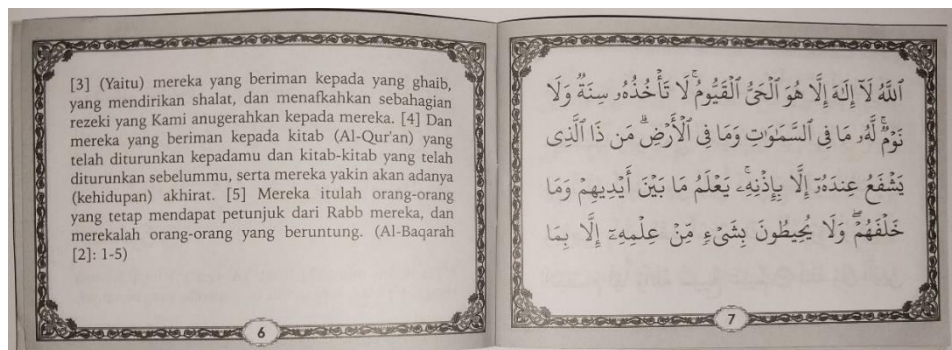 [3] (Yaitu) mereka yang beriman kepada yang ghaib,
yang mendirikan shalat, dan menafkahkan sebahagian
rezeki yang Kami anugerahkan kepada mereka. [4] Dan
mereka yang beriman kepada kitab (Al-Qur'an) yang
telah diturunkan kepadamu dan kitab-kitab yang telah
diturunkan sebelummu, serta mereka yakin akan adanya
(kehidupan) akhirat. [5] Mereka itulah orang-orang
yang tetap mendapat petunjuk dari Rabb mereka, dan
merekalah orang-orang yang beruntung. (Al-Baqarah
[2]: 1-5)
6
ٱللَّهُ لَآ إِلَٰهَ إِلَّا هُوَ ٱلْحَىُّ ٱلْقَيُّومُ ۚ لَا تَأْخُذُهُۥ سِنَةٌ وَلَا
نَوْمٌ ۚ لَّهُۥ مَا فِى ٱلسَّمَٰوَٰتِ وَمَا فِى ٱلْأَرْضِ ۗ مَن ذَا ٱلَّذِى
يَشْفَعُ عِندَهُۥٓ إِلَّا بِإِذْنِهِۦ ۚ يَعْلَمُ مَا بَيْنَ أَيْدِيهِمْ وَمَا
خَلْفَهُمْ ۖ وَلَا يُحِيطُونَ بِشَىْءٍ مِّنْ عِلْمِهِۦٓ إِلَّا بِمَا
7